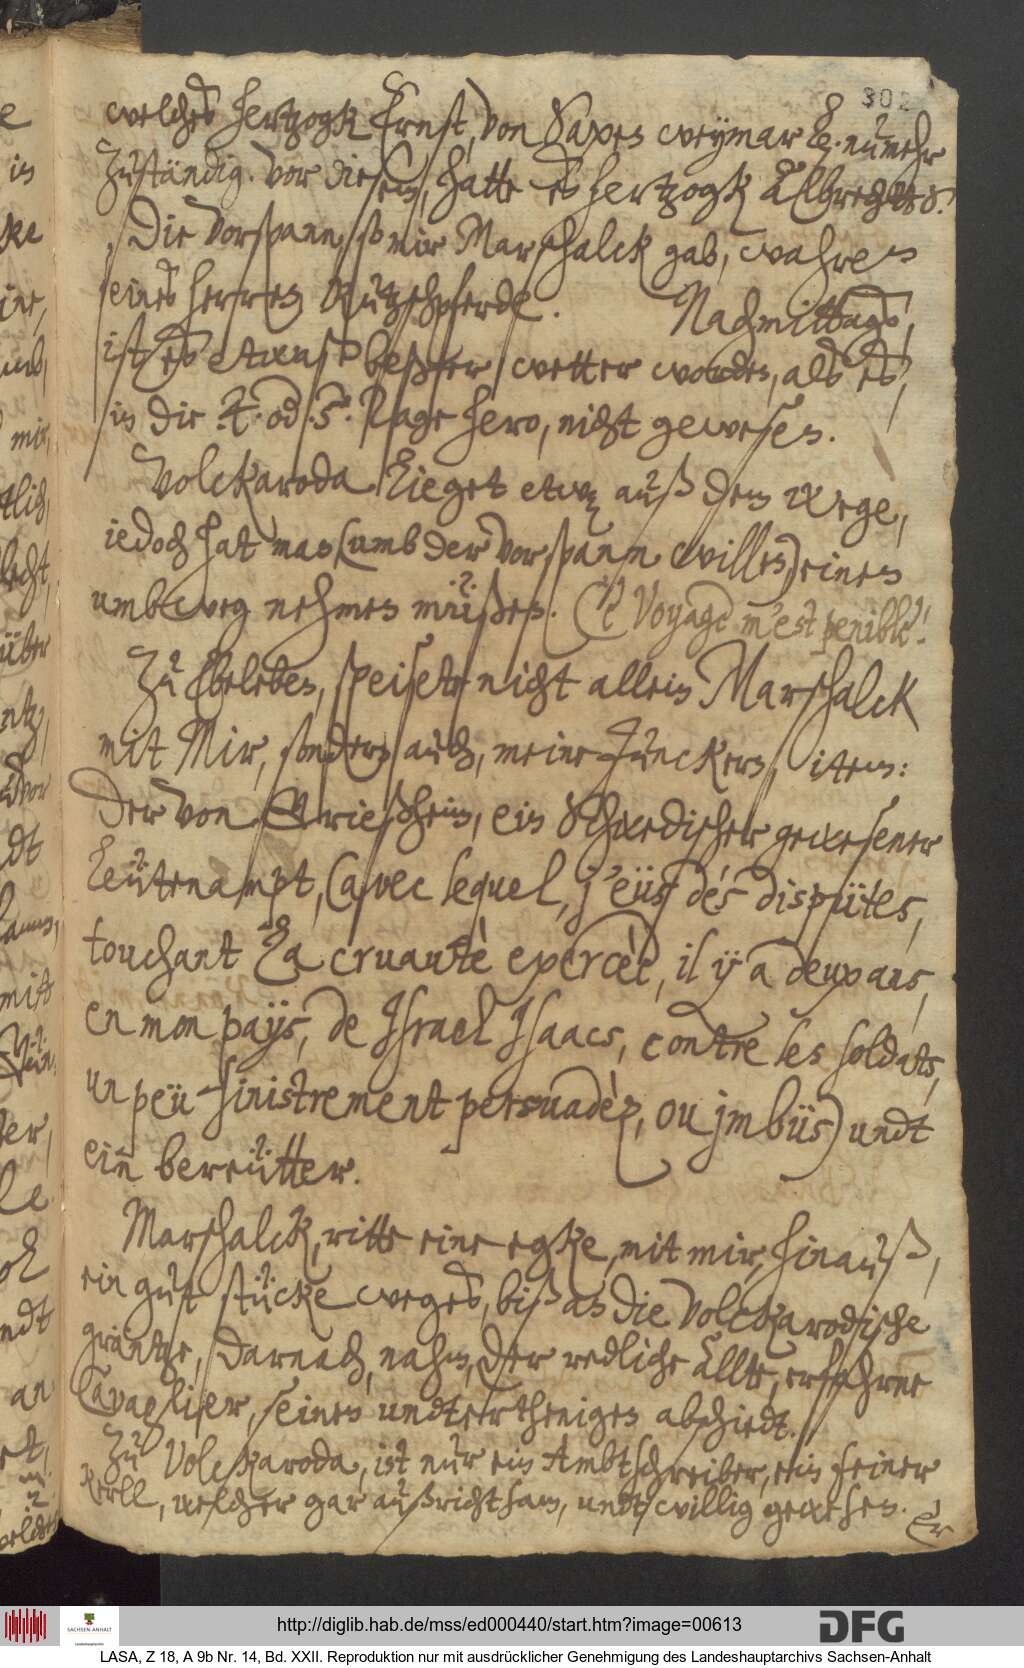 302
welches Hertzogk Ernst, von Saxen Weymar etc. nunmehr
zuständig. Vor diesem, hatte es Hertzogk Albrecht
Die Vorspann, so mir Marschalck gab, wahren
seines Herren Kutzschpferde. Nachmittags,
ist es etwas besser wetter worden, als es,
in die 4. od. 5. Tage hero, nicht gewesen.
Volckaroda lieget etwas auß dem Wege,
iedoch hat man (umb der vorspann willen) einen
umbweg nehmen müßen. (Le Voyage m'est penible!
Zu Ebeleben, speisete nicht allein Marschalck
mit Mir, sondern auch, meine Junckern, item:
der von Grießheim, ein Schwedischer gewesener
Leütenampt, (avec lequel, j'eüs dés dispütes,
touchant La cruautè exercèe, il ÿ a deux ans,
en mon païs, de Israel Isaacs, contre les soldats,
un peü sinistrement persuadèz, ou jmbüs) undt
ein bereütter.
Marschalck, ritte eine egke, mit mir, hinauß,
ein gut stücke weges, biß an die Volckarodische
gräntze, darnach, nahm, der redliche alte, erfahrne
Cavaglier, seinen undterthenigen abschiedt.
Zu Volckaroda, ist nur ein Ambtschreiber, ein feiner
Kerll, welcher gar außrichtsam, undt willig gewesen.
Er
http://diglib.hab.de/mss/ed000440/start.htm?image=00613
SACHSEN-ANHALT
DFG
LASA, Z 18, A 9b Nr. 14, Bd. XXII. Reproduktion nur mit ausdrücklicher Genehmigung des Landeshauptarchivs Sachsen-Anhalt